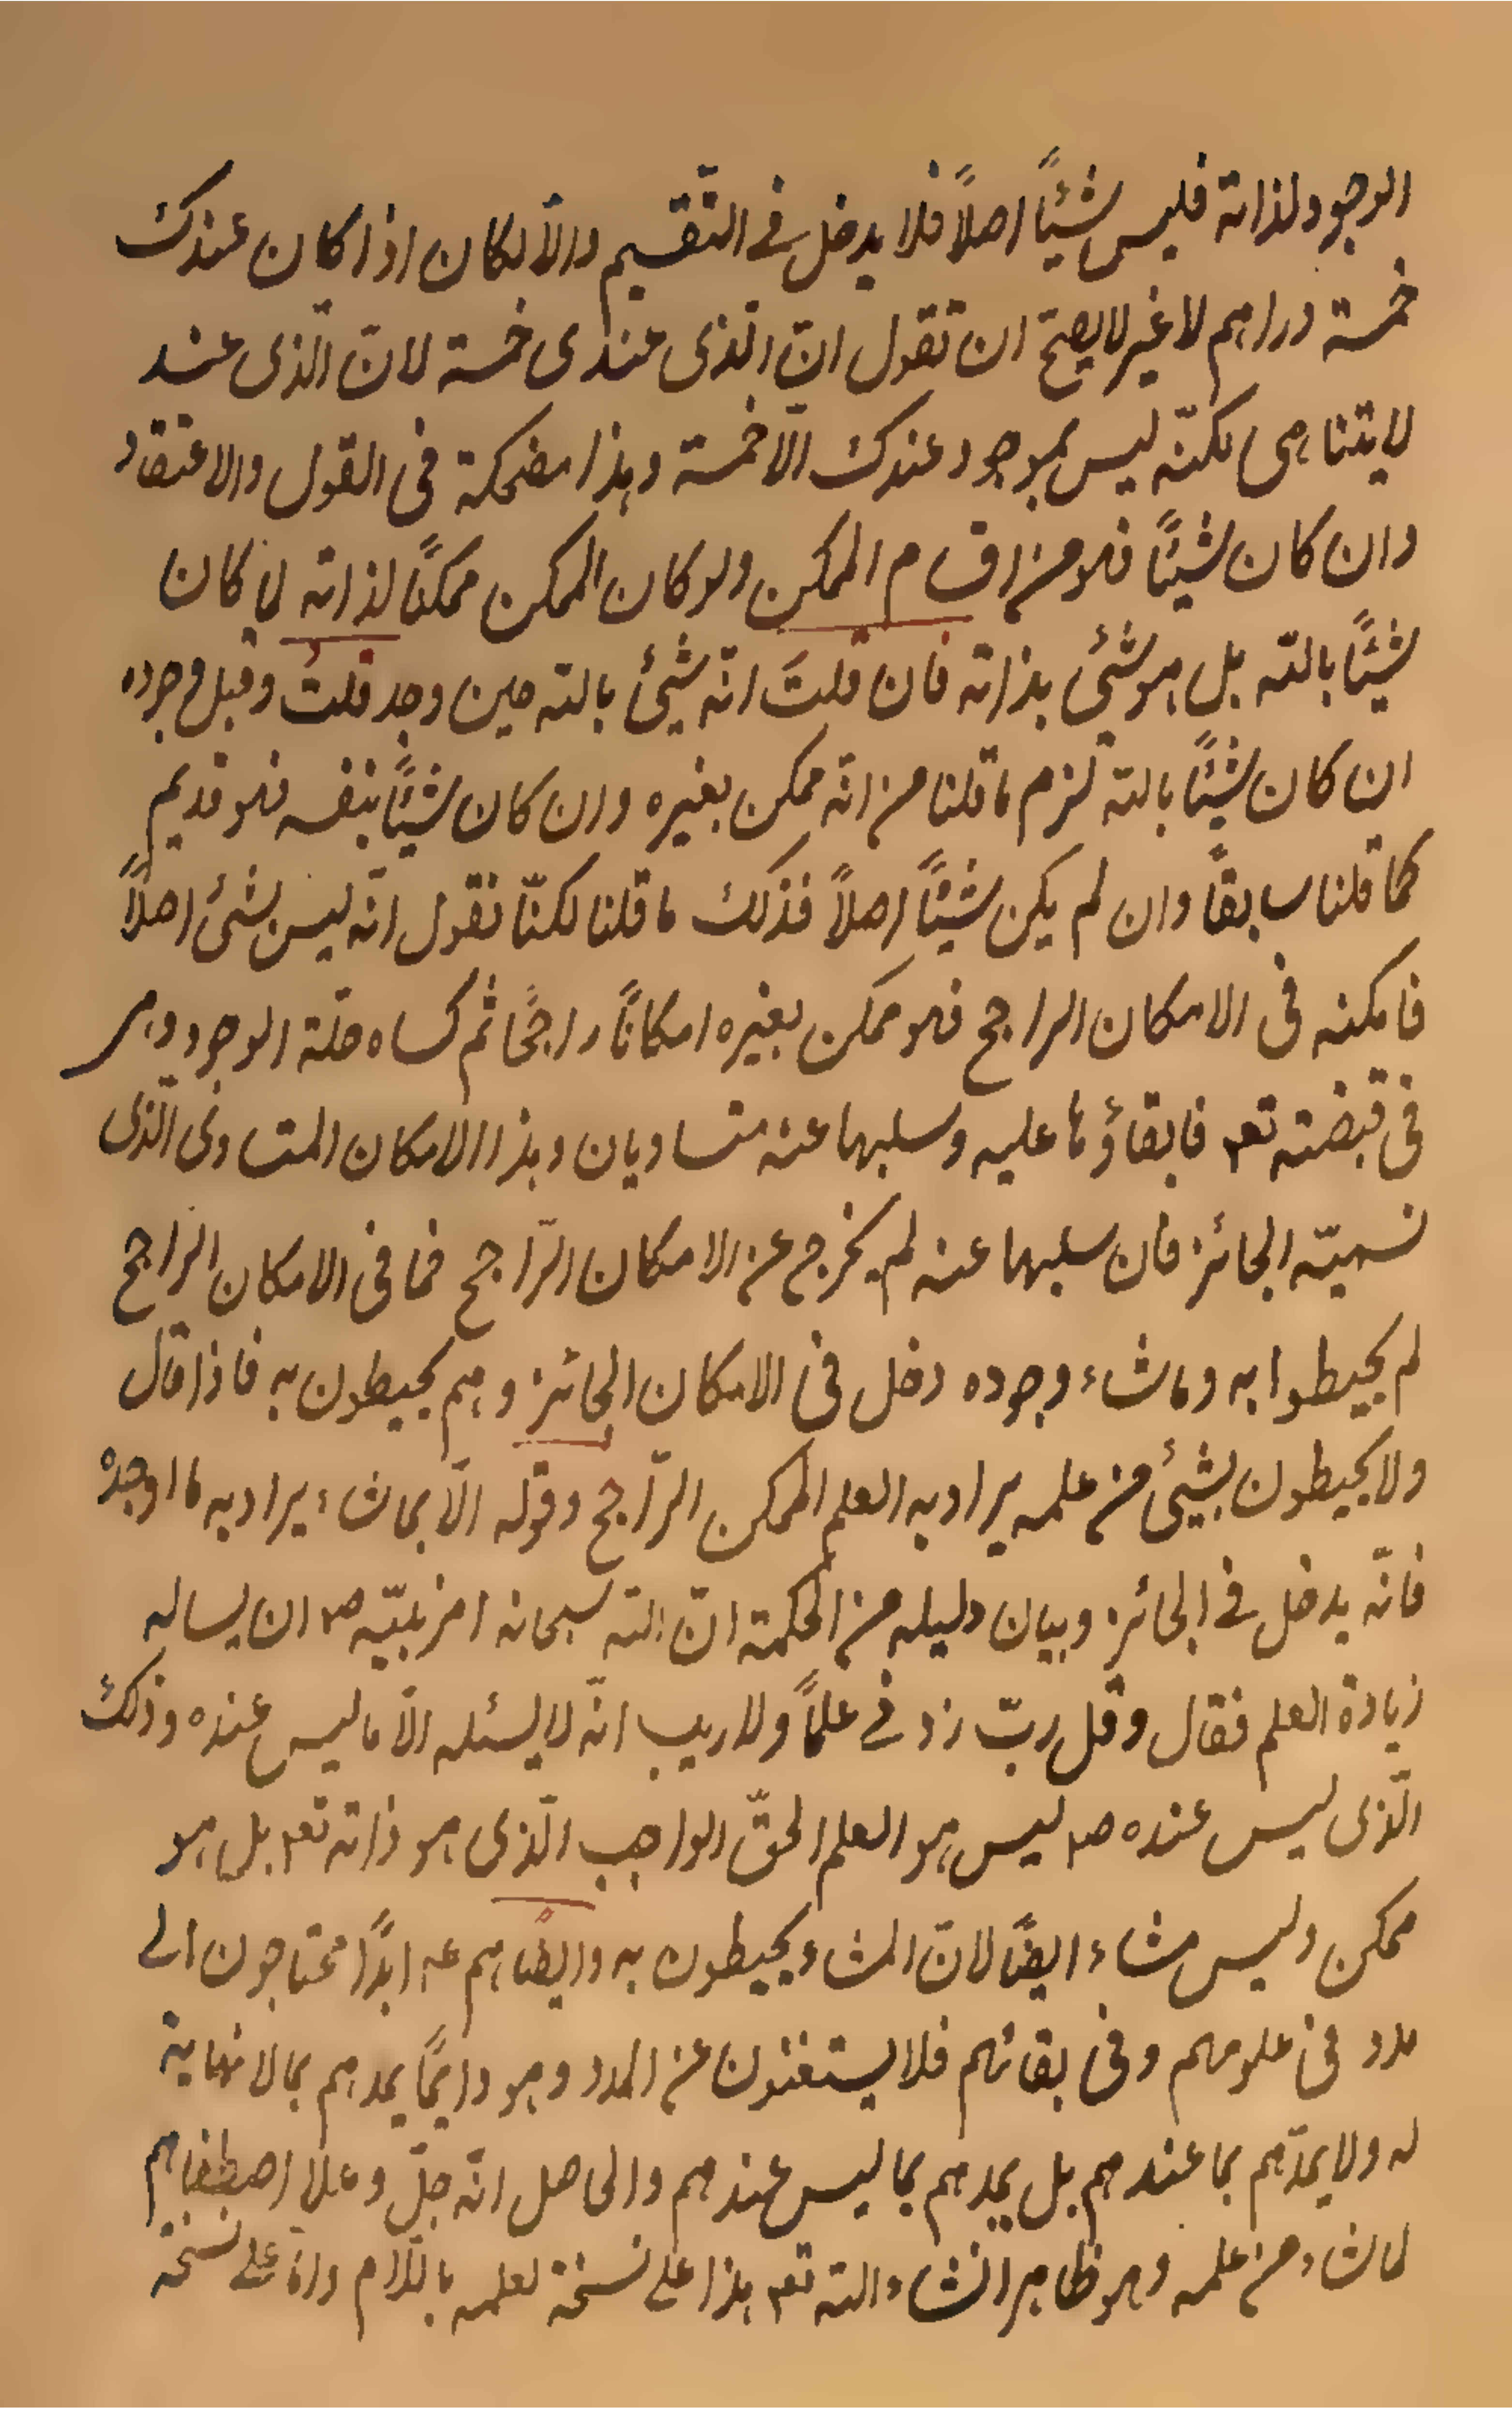 الوجود لذاته فليس شيئًا اصلاً فلا يدخل فے التّقسيم والّا لكان اذا كان عندك
خمسة دراهم لا غير لا يصحّ ان تقول انّ الّذى عندى خمسة لانّ الّذى عند
لا يتناهى لكنّه ليس بموجود عندك الّا خمسة وهذا مضحكة فى القول والاعتقاد
وان كان شيئًا فهو من اقسام الممكن ولو كان الممكن ممكنًا لذاته لما كان
شيئًا بالله بل هو شئ بذاته فان قلتَ انّه شئ بالله حين وجد قلتُ وقبل وجوده
ان كان شيئًا بالله لزم ما قلنا من انّه ممكن بغيره وان كان شيئًا بنفسه فهو قديم
كما قلنا سابقًا وان لم يكن شيئًا اصلاً فذلك ما قلنا لكنّا نقول انّه ليس بشئ اصلاً
فامكنه فى الامكان الراجح فهو ممكن بغيره امكانًا راجحًا ثم كساه حلّة الوجود وهى
فى قبضته تعہ فابقاؤها عليه وسلبها عنه متساويان وهذا الامكان المتساوى الّذى
نسميّه الجائز فان سلبها عنه لم يخرج عن الامكان الرّاجح فما فى الامكان الراجح
لم يحيطوا به وما شاء وجوده دخل فى الامكان الجائز وهم يحيطون به فاذا قال
ولا يحيطون بشئ من علمه يراد به العلم الممكن الرّاجح وقوله الّا بما شاء يراد به ما اوجده
فانّه يدخل فے الجائز وبيان دليله من الحكمة انّ الله سبحانه امر نبيّه صہ ان يساله
زيادة العلم فقال وقل ربّ زدنے علمًا ولا ريب انّه لا يسئله الّا ما ليس عنده وذلك
الّذى ليس عنده صہ ليس هو العلم الحقّ الواجب الّذى هو ذاته تعہ بل هو
ممكن وليس مشاء ايضًا لانّ المشاء يحيطون به وايضًا هم عہ ابدًا محتاجون الى
مدد فى علومهم وفى بقائهم فلا يستغنون عن المدد وهو دايمًا يمدهم بما لا نهاية
له ولا يمدّهم بما عندهم بل يمدهم بما ليس عندهم والحاصل انّه جلّ وعلا اصطفاهم
لما شاء من علمه وهو ظاهر انشاء الله تعہ هذا على نسخة لعلمه باللّام وامّا على نسخة